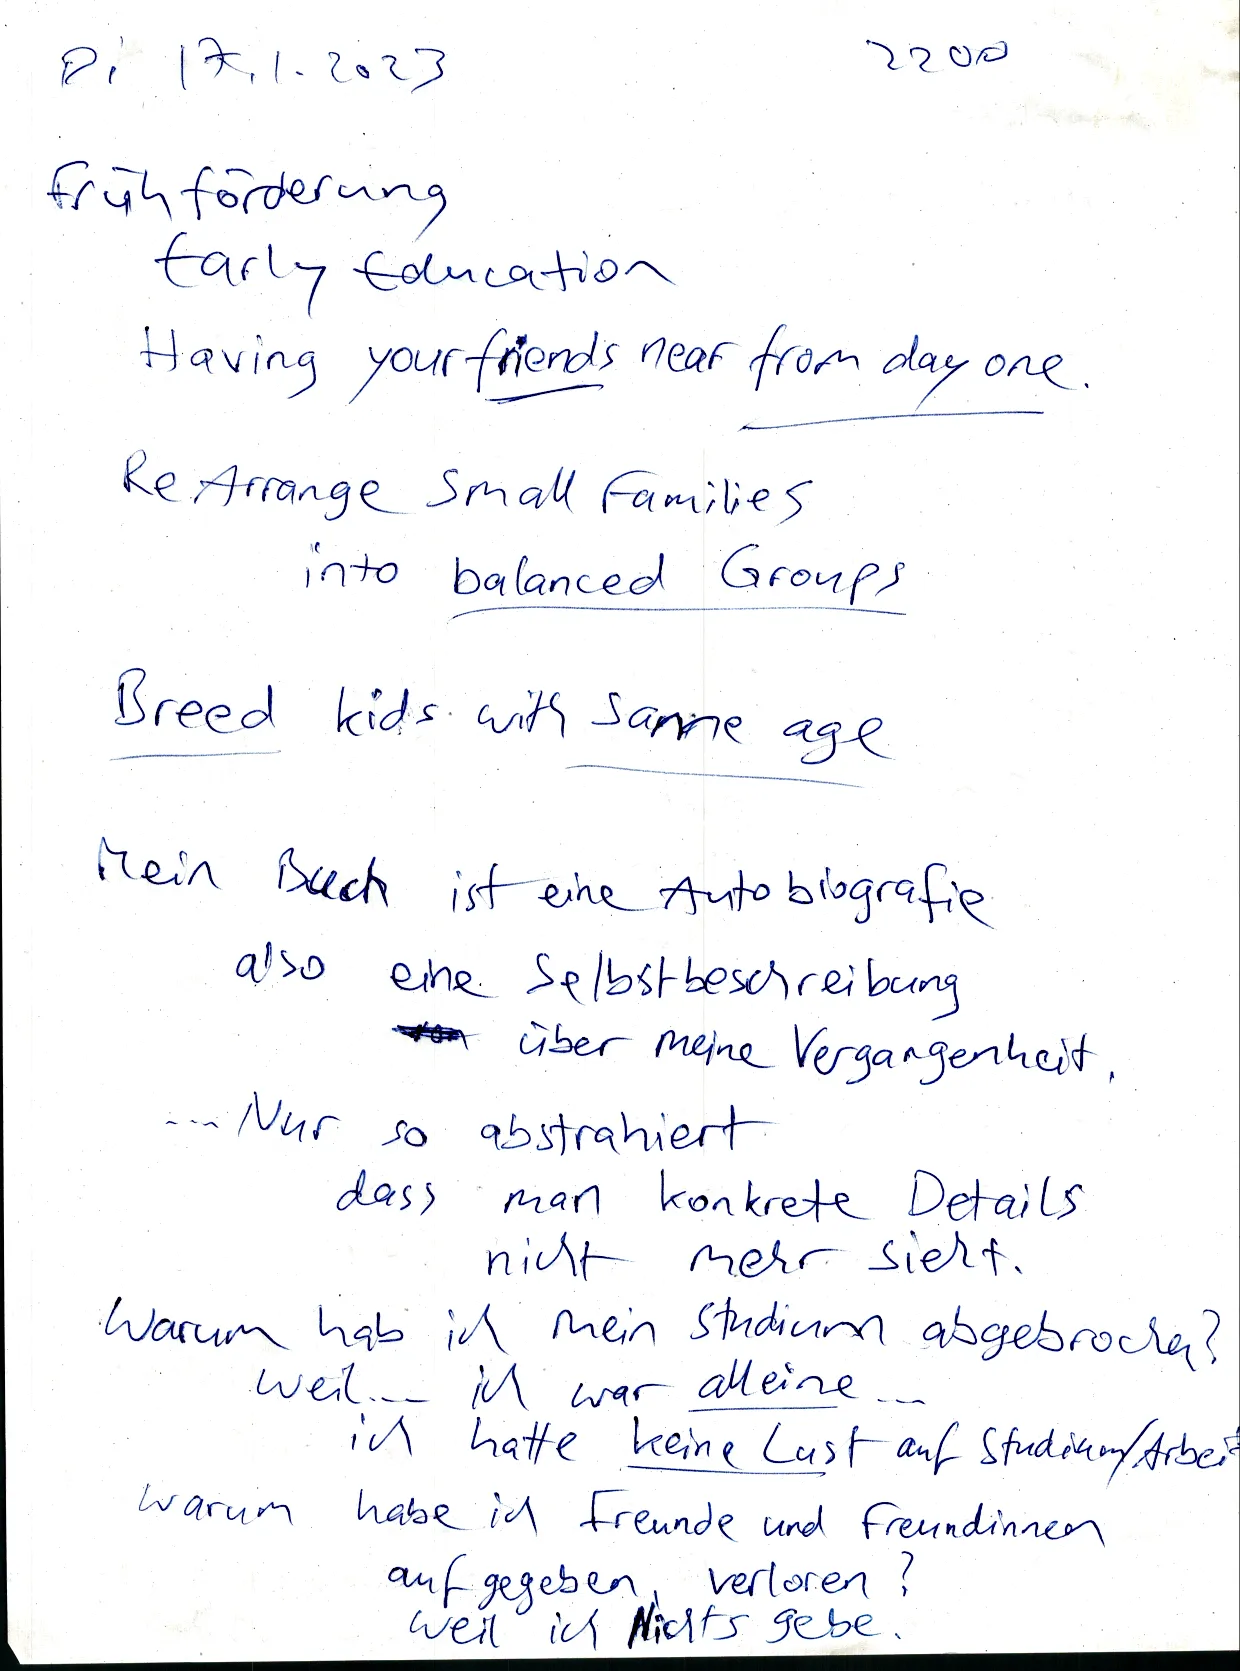 Di 17.1.2023 2200
Frühförderung
Early Education
Having your friends near from day one.
ReArrange Small Families
into balanced Groups
Breed kids with same age
Mein Buch ist eine Autobiografie
also eine Selbstbeschreibung
über meine Vergangenheit.
... Nur so abstrahiert
dass man konkrete Details
nicht mehr sieht.
Warum hab ich mein Studium abgebrochen?
weil... ich war alleine ...
ich hatte keine Lust auf Studium/Arbeit
Warum habe ich Freunde und Freundinnen
aufgegeben, verloren?
weil ich Nichts gebe.